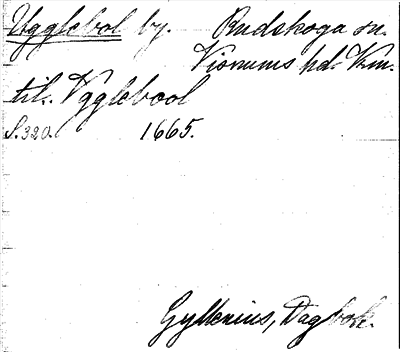 Ugglebol by. Rudskoga sn.
Visnums hd. Vm.
till Vgglebool
S. 320. 1665.
Gyllenius, Dagbok.